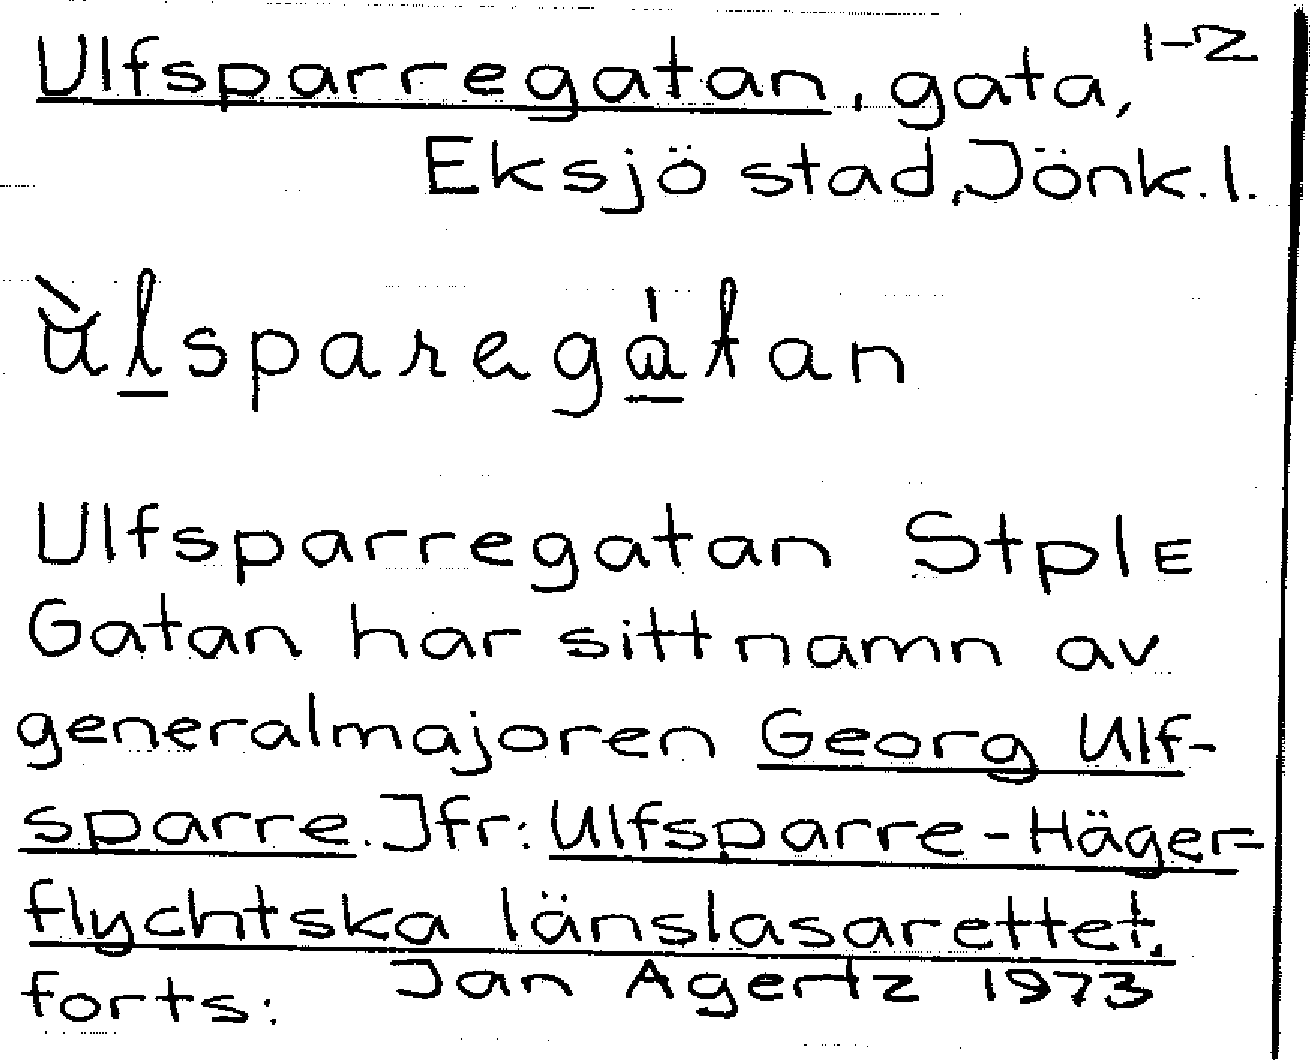 1-2
Ulfsparregatan, gata,
Eksjö stad, Jönk. l.
ùlsparegátan
Ulfsparregatan StplE
Gatan har sitt namn av
generalmajoren Georg Ulf-
sparre. Jfr: Ulfsparre-Häger-
flychtska länslasarettet.
forts: Jan Agertz 1973